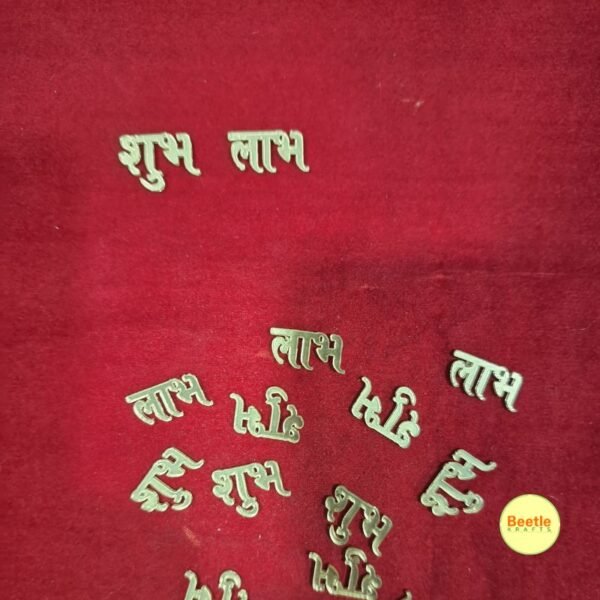 शुभ लाभ
लाभ
लाभ
लाभ
शुभ
शुभ
शुभ
शुभ
शुभ
शुभ
शुभ
Beetle
KRAFTS